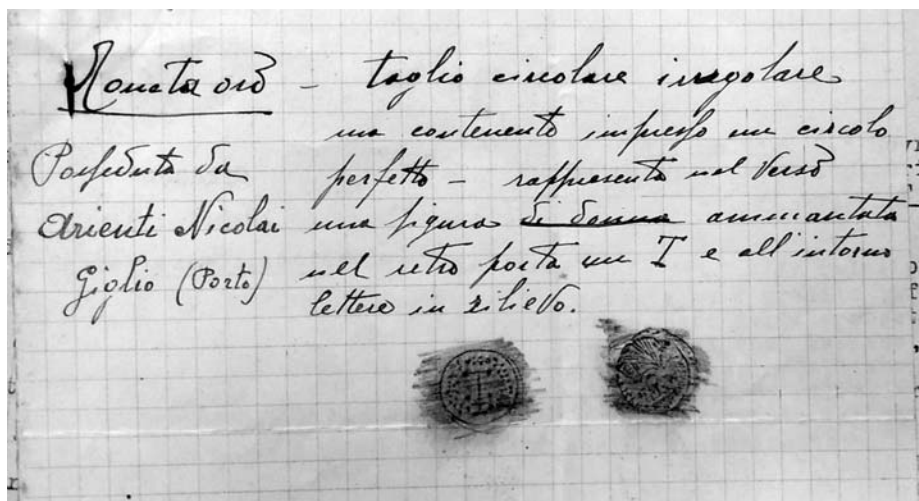 Moneta oro – taglio circolare irregolare
ma contenente impresso un circolo
perfetto – rappresenta nel verso
una figura di donna ammantata
nel retro porta un I e all'intorno
lettere in rilievo.
Posseduta da
Arienti Nicolai
Giglio (Porto)